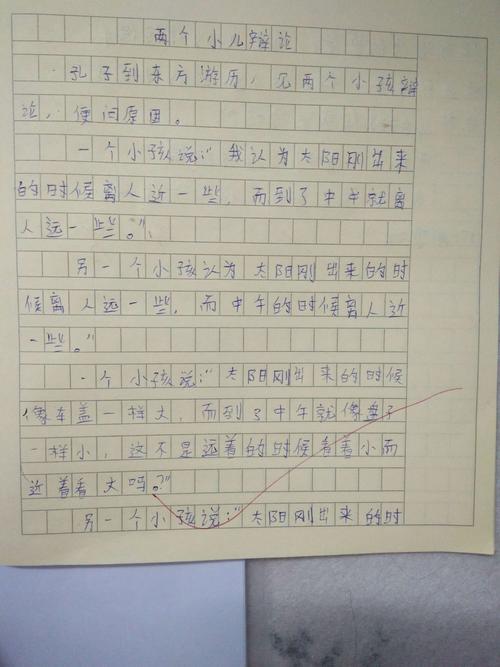 两个小儿辩论
孔子到东方游历，见两个小孩辩
论，便问原因。
一个小孩说：“我认为太阳刚出来
的时候离人近一些，而到了中午就离
人远一些。”
另一个小孩认为太阳刚出来的时
候离人远一些，而中午的时候离人近
一些。”
一个小孩说：“太阳刚出来的时候
像车盖一样大，而到了中午就像盘子
一样小，这不是远着的时候看着小而
近着看大吗？”
另一个小孩说：“太阳刚出来的时